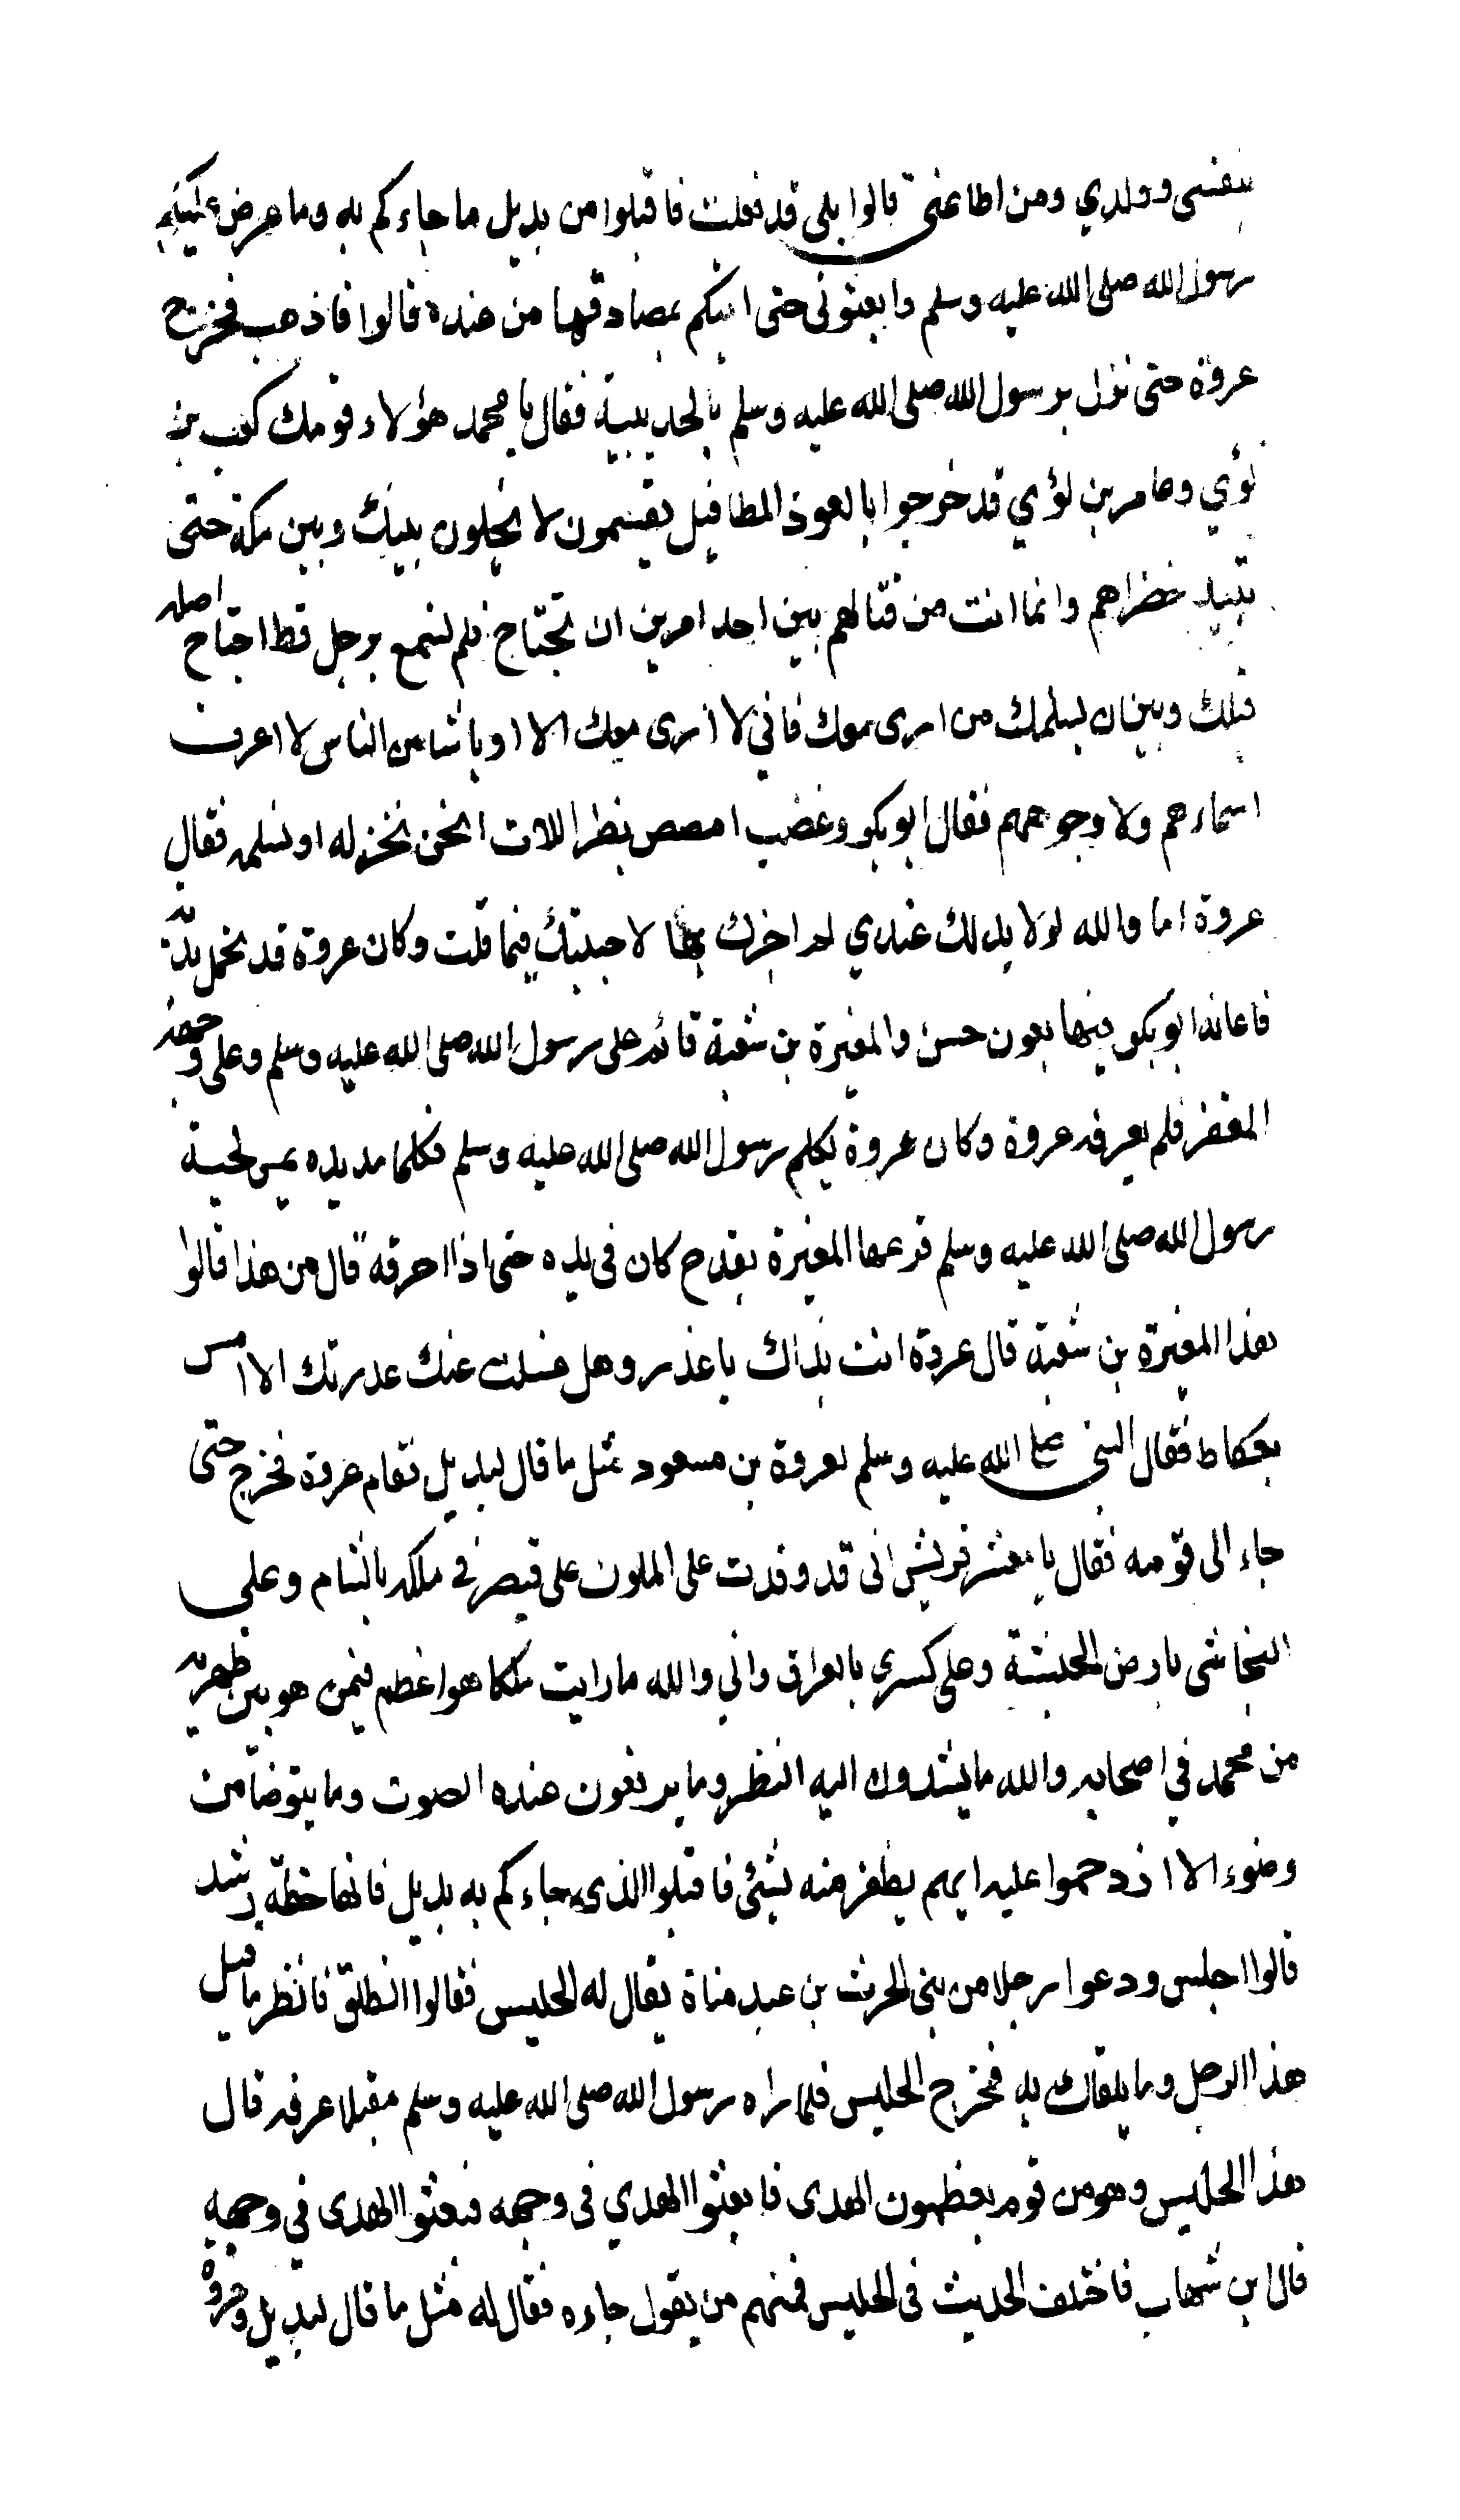 بنفسى وولدي ومن اطاعنى قالوا بلى قد فعلت فاقبلوا من بديل ما جاءكم به وما عرض عليكم
رسول الله صلى الله عليه وسلم وابعثونى حتى اتيكم بمصادقها من عنده قالوا فاذهب فخرج
عروة حتى نزل برسول الله صلى الله عليه وسلم بالحديبية فقال يا محمد هؤلاء قومك كعب بن
لؤي وعامر بن لؤي قد خرجوا بالعوذ المطافيل يقسمون لا يخلون بينك وبين مكة حتى
تبيد خضراهم وانما انت من قتالهم بين احد امرين ان تجتاح فلم نسمع برجل قط اجتاح اصله
قبلك وبين ان يسلمك من ارى معك فاني لا ارى معك الا اوباشا من الناس لا اعرف
اسماءهم ولا وجوههم فقال ابو بكر وغضب امصص بظر اللات انحن نخذله او نسلمه فقال
عروة اما والله لولا يد لك عندي لم اجزك بها لاجبتك فيما قلت وكان عروة قد تحمل بدية
فاعانه ابو بكر فيها بعون حسن والمغيرة بن شعبة قائم على رسول الله صلى الله عليه وسلم وعلى وجهه
المغفر فلم يعرفه عروة وكان عروة يكلم رسول الله صلى الله عليه وسلم فكلما مد يده يمس لحية
رسول الله صلى الله عليه وسلم قرعها المغيرة بقدح كان فى يده حتى اذا احرقه قال من هذا قالوا
هذا المغيرة بن شعبة قال عروة انت بذاك يا غدر وهل غسلت عنك غدرتك الا امس
بعكاظ فقال النبي صلى الله عليه وسلم لعروة بن مسعود مثل ما قال لبديل فقام عروة فخرج حتى
جاء الى قومه فقال يا معشر قريش انى قد وفدت على الملوك على قيصر في ملكه بالشام وعلى
النجاشى بارض الحبشة وعلى كسرى بالعراق واني والله ما رايت ملكا هو اعظم فيمن هو بين ظهريه
من محمد في اصحابه والله ما يشدون اليه النظر وما يرفعون عنده الصوت وما يتوضا من
وضوء الا ازدحموا عليه ايهم يظفر منه بشئ فاقبلوا الذى جاءكم به بديل فانها خطة رشد
قالوا اجلس ودعوا رجلا من بنى الحرث بن عبد مناة يقال له الحليس فقالوا انطلق فانظر ما قبل
هذا الرجل وما يلقاك به فخرج الحليس فلما راه رسول الله صلى الله عليه وسلم مقبلا عرفه قال
هذا الحليس وهو من قوم يعظمون الهدى فابعثوا الهدي فى وجهه فبعثوا الهدى فى وجهه
قال ابن شهاب فاختلف الحديث فى الحليس فمنهم من يقول جاءه فقال له مثل ما قال لبديل وعروة